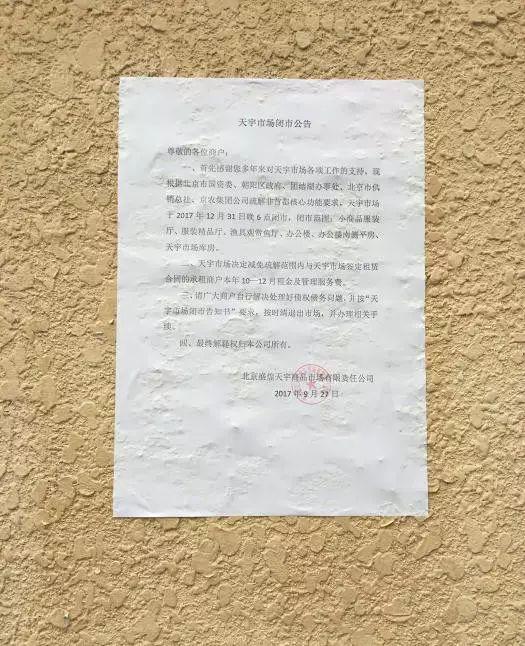 天宇市场闭市公告
尊敬的各位商户:
一、首先感谢您多年来对天宇市场各项工作的支持。现
根据北京市国资委、朝阳区政府、团结湖办事处、北京市供
销总社、京农集团公司疏解非首都核心功能要求,天宇市场
于 2017 年 12 月 31 日晚 6 点闭市,闭市范围:小商品服装
厅、服装精品厅、渔具观赏鱼厅、办公楼、办公楼南侧平房、
天宇市场库房。
二、天宇市场决定减免疏解范围内与天宇市场签定租赁
合同的承租商户本年 10—12 月租金及管理服务费。
三、请广大商户自行解决处理好债权债务问题,并按“天
宇市场闭市告知书”要求,按时清退出市场,并办理相关手
续。
四、最终解释权归本公司所有。
北京盛煌天宇商品市场有限责任公司
2017 年 9 月 27 日